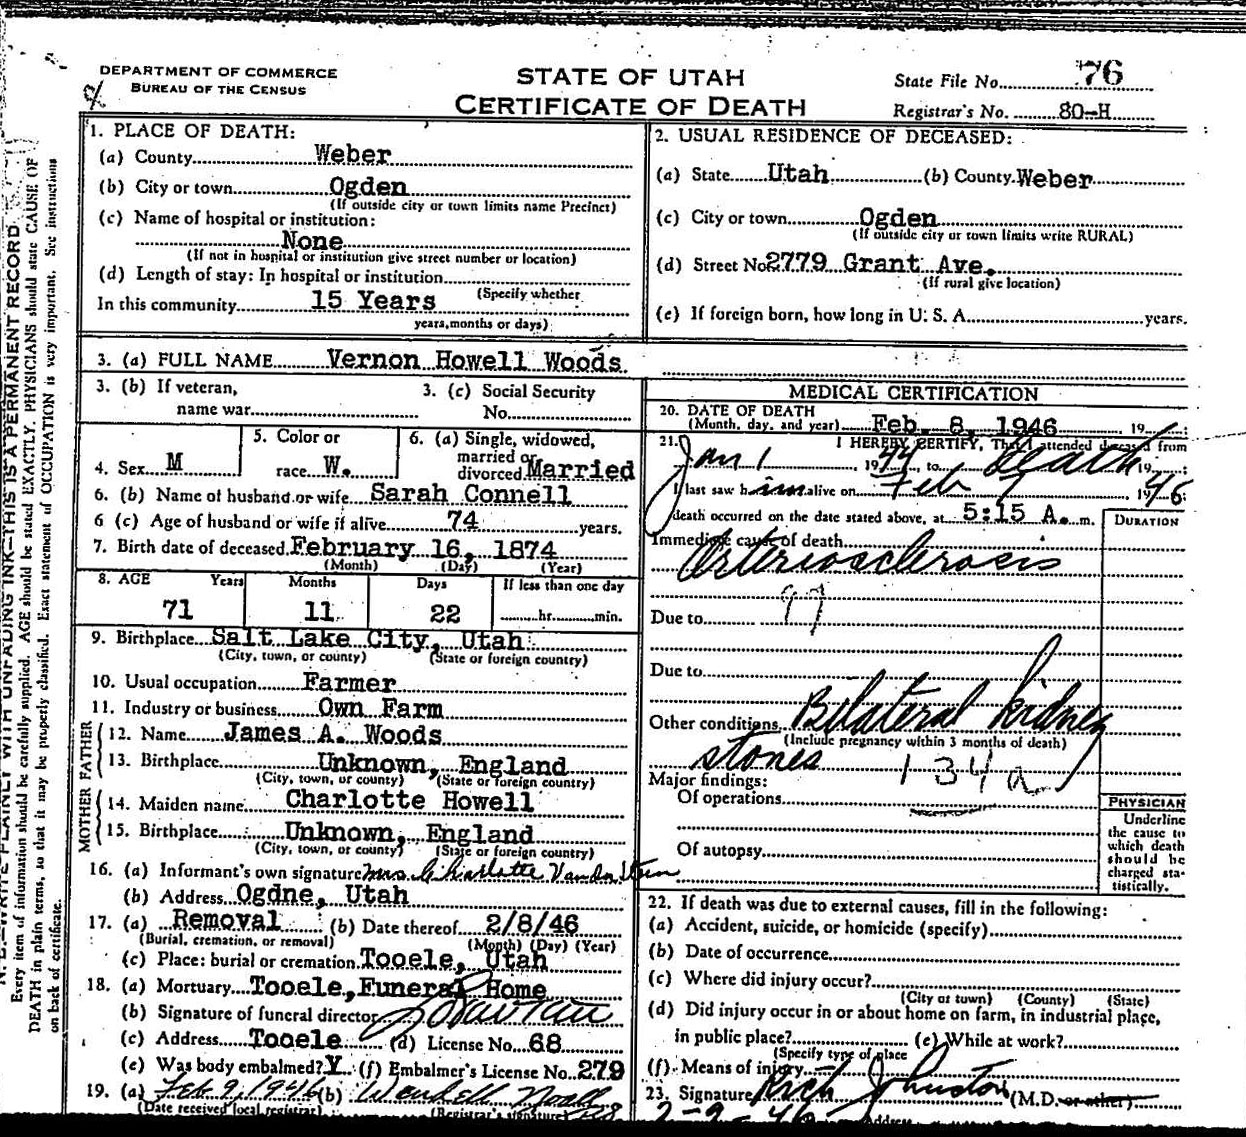 DEPARTMENT OF COMMERCE
BUREAU OF THE CENSUS
STATE OF UTAH
CERTIFICATE OF DEATH
State File No. 76
Registrar's No. 80-H
1. PLACE OF DEATH:
(a) County Weber
(b) City or town Ogden
(If outside city or town limits name Precinct)
(c) Name of hospital or institution:
None
(If not in hospital or institution give street number or location)
(d) Length of stay: In hospital or institution
(Specify whether
In this community 15 Years
years, months or days)
2. USUAL RESIDENCE OF DECEASED:
(a) State Utah (b) County Weber
(c) City or town Ogden
(If outside city or town limits write RURAL)
(d) Street No 2779 Grant Ave.
(If rural give location)
(e) If foreign born, how long in U. S. A. years.
3. (a) FULL NAME Vernon Howell Woods
3. (b) If veteran,
name war
3. (c) Social Security
No.
4. Sex M
5. Color or
race W.
6. (a) Single, widowed,
married or
divorced Married
6. (b) Name of husband or wife Sarah Connell
6 (c) Age of husband or wife if alive 74 years.
7. Birth date of deceased February 16, 1874
(Month) (Day) (Year)
8. AGE Years Months Days If less than one day
71 11 22 hr. min.
9. Birthplace Salt Lake City, Utah
(City, town, or county) (State or foreign country)
10. Usual occupation Farmer
11. Industry or business Own Farm
FATHER
12. Name James A. Woods
13. Birthplace Unknown, England
(City, town, or county) (State or foreign country)
MOTHER
14. Maiden name Charlotte Howell
15. Birthplace Unknown, England
(City, town, or county) (State or foreign country)
16. (a) Informant's own signature Mrs Charlotte
(b) Address Ogdne, Utah
17. (a) Removal (b) Date thereof 2/8/46
(Burial, cremation, or removal) (Month) (Day) (Year)
(c) Place: burial or cremation Tooele, Utah
18. (a) Mortuary Tooele, Funeral Home
(b) Signature of funeral director
(c) Address Tooele (d) License No. 68
(e) Was body embalmed? Y (f) Embalmer's License No. 279
19. (a) Feb 9, 1946 (b) Wendell Noall
(Date received local registrar) (Registrar's signature)
MEDICAL CERTIFICATION
20. DATE OF DEATH
(Month, day, and year) Feb. 8, 1946 19
21. I HEREBY CERTIFY, That I attended deceased from
Jan 1 1944 to Death 19
I last saw him alive on Feb 7 1946
death occurred on the date stated above, at 5:15 A. m.
DURATION
Immediate cause of death
Arteriosclerosis
97
Due to
Due to
Other conditions Bilateral kidney
(Include pregnancy within 3 months of death)
stones 134a
Major findings:
Of operations
Of autopsy
PHYSICIAN
Underline
the cause to
which death
should be
charged sta-
tistically.
22. If death was due to external causes, fill in the following:
(a) Accident, suicide, or homicide (specify)
(b) Date of occurrence
(c) Where did injury occur?
(City or town) (County) (State)
(d) Did injury occur in or about home on farm, in industrial place,
in public place? (e) While at work?
(Specify type of place
(f) Means of injury
23. Signature Rich Johnston (M.D. or other)
2-9-46 Address
N. B.—WRITE PLAINLY WITH UNFADING INK—THIS IS A PERMANENT RECORD.
Every item of information should be carefully supplied. AGE should be stated EXACTLY. PHYSICIANS should state CAUSE OF
DEATH in plain terms, so that it may be properly classified. Exact statement of OCCUPATION is very important. See instructions
on back of certificate.